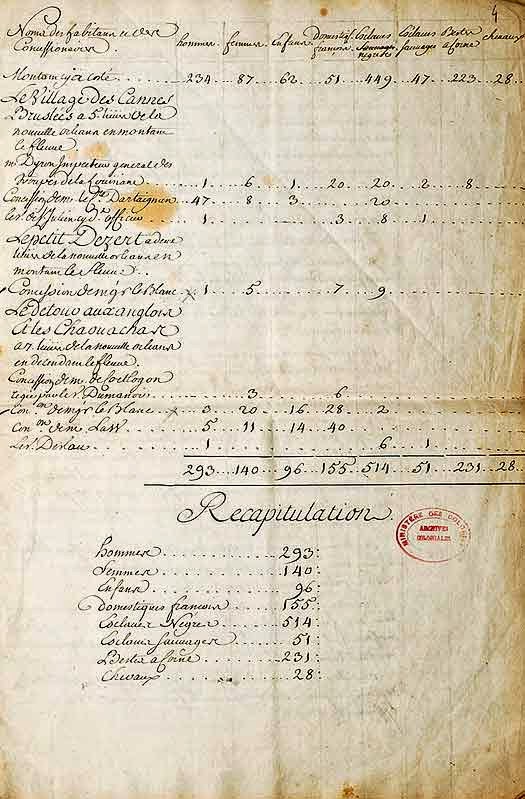 4
Noms des habitans et des hommes femmes enfans domestiq. Esclaves Esclaves Bestes chevaux
Concessionaires françois negres sauvages a corne
Montant cy a coté 234 87 62 51 449 47 223 28
Le Village des Cannes
Bruslées a 5 lieües de la
nouvelle orleans en montant
le fleuve
mr Dyron Inspecteur general des
troupes de la Louisiane 1 6 1 20 20 2 8
Concession de mr le Dartaignan 47 8 3 20
Le sr de St Julien cy dt officier 1 3 8 1
Le petit Dezert a deux
lieües de la nouvelle orleans en
montant le fleuve
Concession de mgr le Blanc x 1 5 7 9
Le detour aux anglois
et les Chaouachas
a 7 lieües de la nouvelle orleans
en descendant le fleuve
Concession de mr de Coetlogon
regie par le sr Dumanoir 3 6
Con.on de mgr le Blanc x 3 20 16 28 2
Con.on de mr Lass 5 11 14 40
Le sr Deslau 1 6 1
293 140 96 155 514 51 231 28
Recapitulation
hommes 293
femmes 140
Enfans 96
Domestiques francois 155
Esclaves Negres 514
Esclaves sauvages 51
Bestes a Corne 231
Chevaux 28
MINISTÈRE DES COLONIES
ARCHIVES
COLONIALES